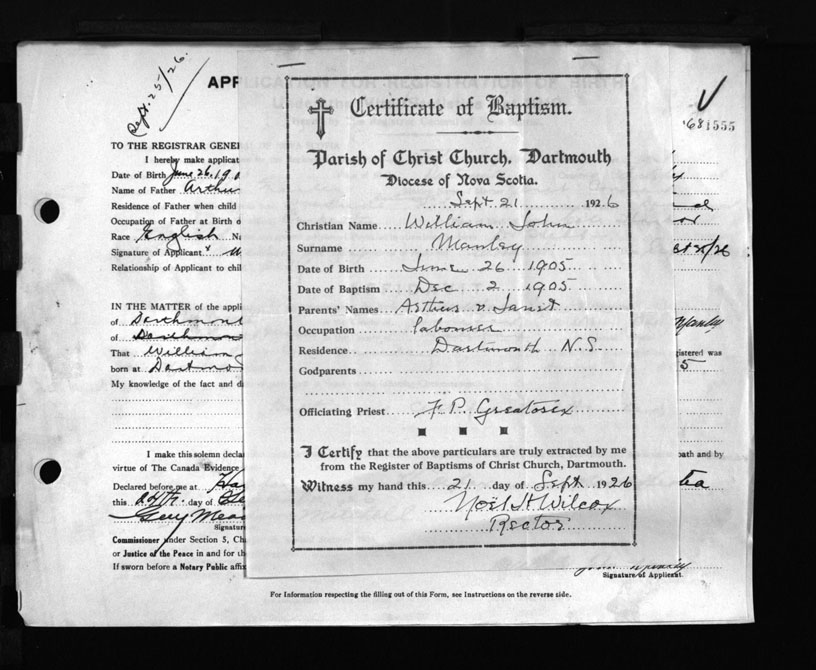 Sept. 25/26.
APP
681555
TO THE REGISTRAR GENE
I hereby make applicat
Date of Birth June 26, 190
Name of Father Arthu
Residence of Father when child
Occupation of Father at Birth o
Race English Na
Signature of Applicant
Relationship of Applicant to chil
IN THE MATTER of the appli
of Dartmout
of Dartmou
That William
born at Dartmo
My knowledge of the fact and d
I make this solemn decla
virtue of The Canada Evidence
Declared before me at Ha
this 24th. day of
Signature
Commissioner under Section 5, Ch
or Justice of the Peace in and for th
If sworn before a Notary Public affix
Certificate of Baptism.
Parish of Christ Church. Dartmouth
Diocese of Nova Scotia.
Sept 21 1926
Christian Name William John
Surname Manley
Date of Birth June 26 1905
Date of Baptism Dec 2 1905
Parents' Names Arthur & Janet
Occupation labourer
Residence Dartmouth N.S.
Godparents
Officiating Priest F P. Greatorex
I Certify that the above particulars are truly extracted by me
from the Register of Baptisms of Christ Church, Dartmouth.
Witness my hand this 21 day of Sept 1926
Noel H Wilcox
Rector
st 25/26
Manley
gistered was
5
path and by
Signature of Applicant.
For Information respecting the filling out of this Form, see Instructions on the reverse side.